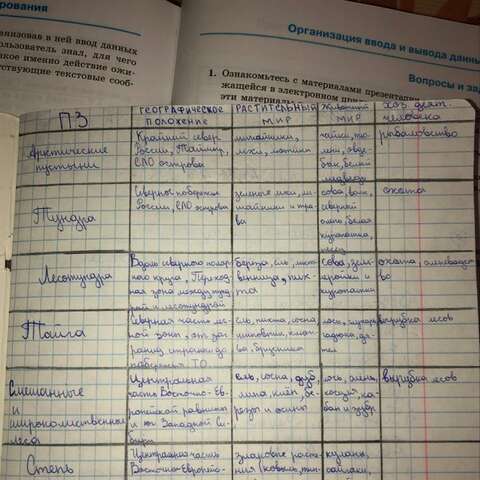 рования
анизовав в ней ввод данных
ользователь знал, для чего
кое именно действие ожи-
тствующие текстовые сооб-
Организация ввода и вывода данных
Вопросы и за
1. Ознакомьтесь с материалами презентации
жащейся в электронном при
эти материалы
ПЗ
ГЕОГРАФИЧЕСКОЕ ПОЛОЖЕНИЕ
РАСТИТЕЛЬНЫЙ МИР
ЖИВОТНЫЙ МИР
хоз. деят. человека
Арктические
пустыни
Крайний север
России, Таймыр,
СЛО острова
лишайники,
мхи, лютики
чайки, тю-
лени,
белый
медведь
рыболовство
Тундра
Северное побережье
России, СЛО острова
зеленые мхи, ли-
шайники и тра-
ва
сова, волк,
северный
олень, белая
куропатка,
песец
охота
Лесотундра
Вдоль северного поляр-
ного круга, Переход-
ная зона между тунд-
рой и лесотундрой
берёза, ель, лист-
венница, пих-
та
сова, зем-
ройки и
куропатки
охота, оленеводст
во
Тайга
Северная часть лес-
ной зоны, от за-
падных границ до
побережья ТО
ель, пихта, сосна,
шиповник,
ва, брусника
лось, глухарь,
гадюка, дя-
тел
вырубка лесов
Смешанные
и
широколиственные
леса
Центральная
часть Восточно-Ев-
ропейской равнины
и юг Западной Си-
бири
ель, сосна, дуб,
липа, клён, бе-
рёзы и осины
лось, олень,
косуля, ка-
бан и зубр
вырубка лесов
Степь
Центральная часть
Восточно-Европейс-
злаковые расте-
ния (ковыль, тип-
куланы,
сайгаки,